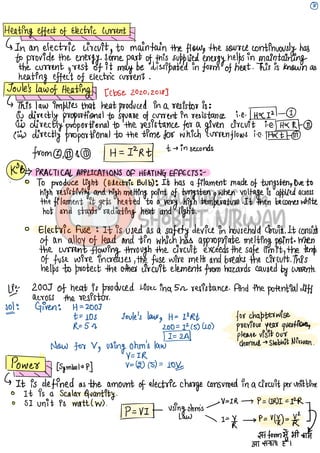 Heating effect of Electric Current
↳ In an electric circuit, to maintain the flow, the source continuously has
to provide the energy. Some part of this supplied energy helps in maintaining
the current & rest of it may be dissipated in form of heat. This is known as
heating effect of electric current.
Joule's law of Heating [CBSE 2020, 2018]
↳ This law implies that heat produced in a resistor is:
(i) directly proportional to square of current in resistance i.e. H∝I² —(I)
(ii) directly proportional to the resistance for a given circuit i.e. H∝R —(II)
(iii) directly proportional to the time for which current flows i.e. H∝t —(III)
from (I), (II) & (III) H = I²Rt t → in seconds
PRACTICAL APPLICATIONS OF HEATING EFFECTS:-
To produce light (Electric Bulb): It has a filament made of tungsten, due to
high resistivity and high melting point of tungsten, when voltage is applied across
the filament it gets heated to a very high temperature. It then becomes white
hot and starts radiating heat and light.
Electric Fuse: It is used as a safety device in household circuit. It consist
of an alloy of lead and tin which has appropriate melting point. When
the current flowing through the circuit exceeds the safe limit, the temp
of fuse wire increases, the fuse wire melt and breaks the circuit. This
helps to protect the other circuit elements from hazards caused by current.
200J of heat is produced 10s in a 5Ω resistance. Find the potential diff
across the resistor.
Sol: Given: H = 200J
t = 10s Joule's law, H = I²Rt
R = 5Ω 200 = I² (5) (10)
I = 2A
Now for V, using ohm's law
V = IR
V = (2) (5) = 10V
for chapterwise
previous year questions,
please visit our
channel → Shobhit Nirwan.
Power [Symbol = P]
↳ It is defined as the amount of electric charge consumed in a circuit per unit time
It is a Scalar Quantity
SI unit is watt (W).
P = VI using ohm's law
V = IR → P = (IR)I = I²R
I = V/R → P = V(V/R) = V²/R
SHOBHIT NIRWAN